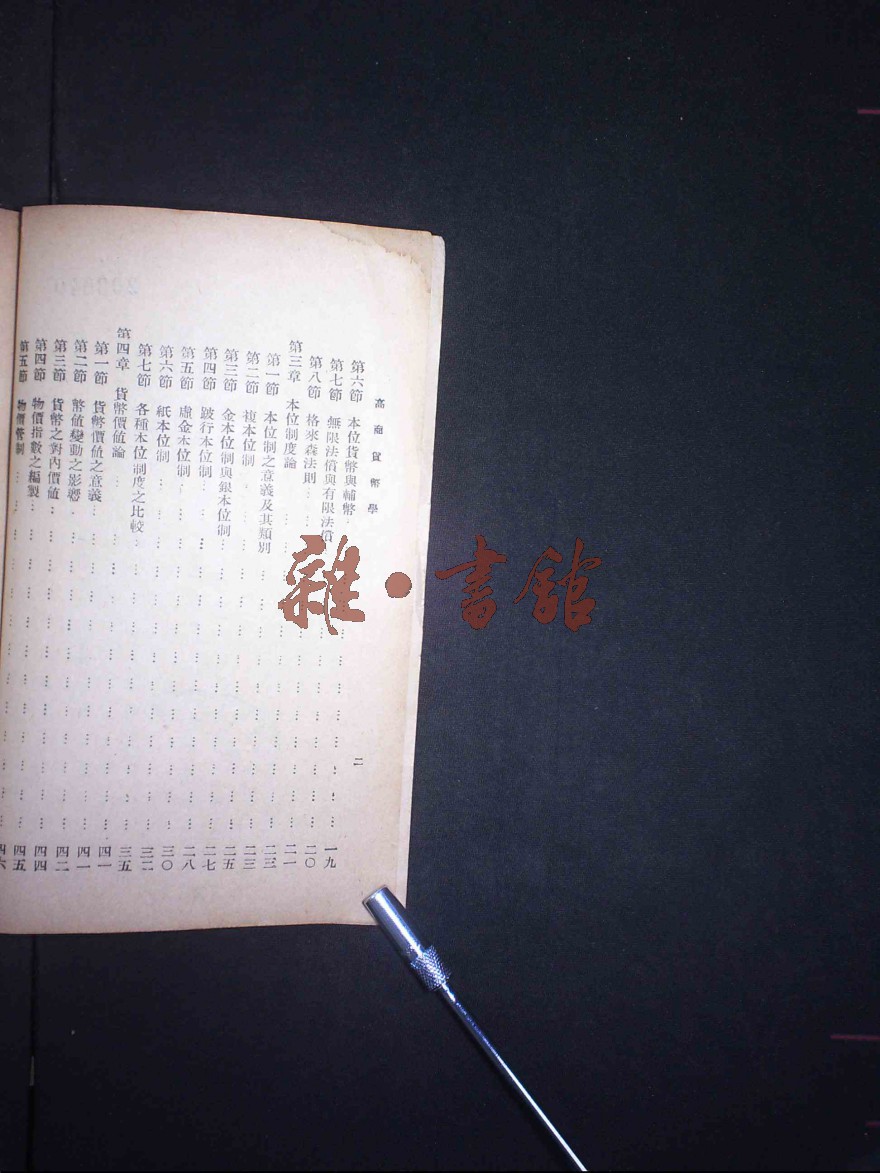 高 貨幣學
二
第六節 本位貨幣與補幣……一九
第七節 無限法償與有限法償……二〇
第八節 格來森法則……二一
第三章 本位制度論……二三
第一節 本位制之意義及其類別……二三
第二節 複本位制……二五
第三節 金本位制與銀本位制……二七
第四節 跛行本位制……二八
第五節 虛金本位制……三〇
第六節 紙本位制……三二
第七節 各種本位制度之比較……三五
第四章 貨幣價值論……四一
第一節 貨幣價值之意義……四一
第二節 幣值變動之影響……四二
第三節 貨幣之對內價值……四四
第四節 物價指數之編製……四五
第五節 物價管制……四六
雜·書館